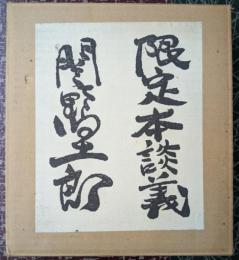 限定本談義
関野準一郎